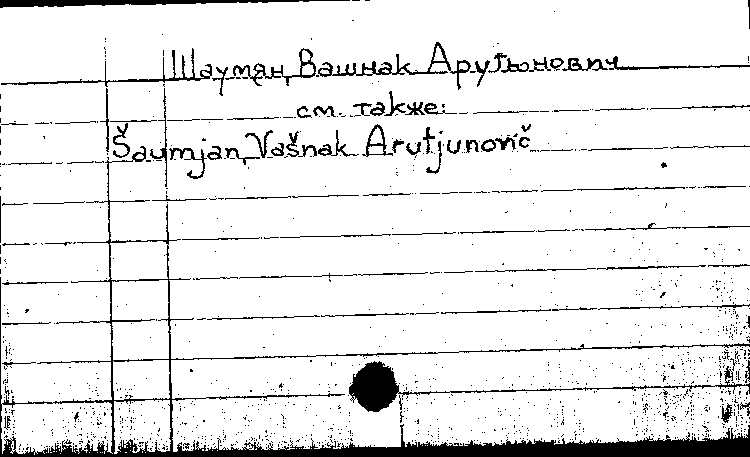 Шаумян, Вашнак Арутюнович
см. также:
Šaumjan, Vašnak Arutjunovič